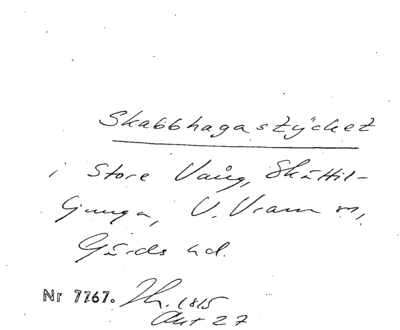 Skabbhagastÿcket
i Store Vång, Skättil-
ljunga, V. Vram sn,
Gärds hd.
Nr 7767. Lh. 1815
Akt 27